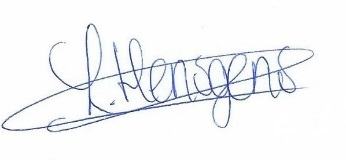 R. Hensgens